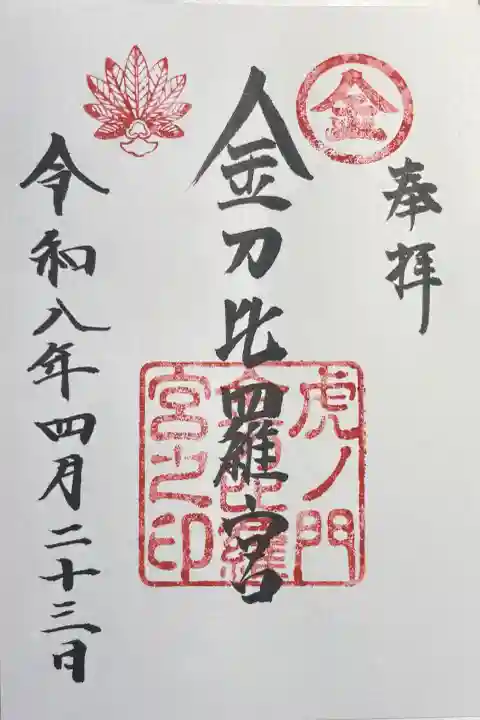 金
奉拝
金刀比羅宮
虎ノ門
金刀比羅
宮之印
令和八年四月二十三日